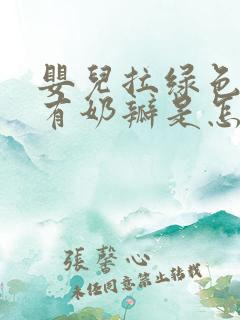 嬰兒拉綠色
有奶瓣是怎
張馨心
未任同意禁止转载